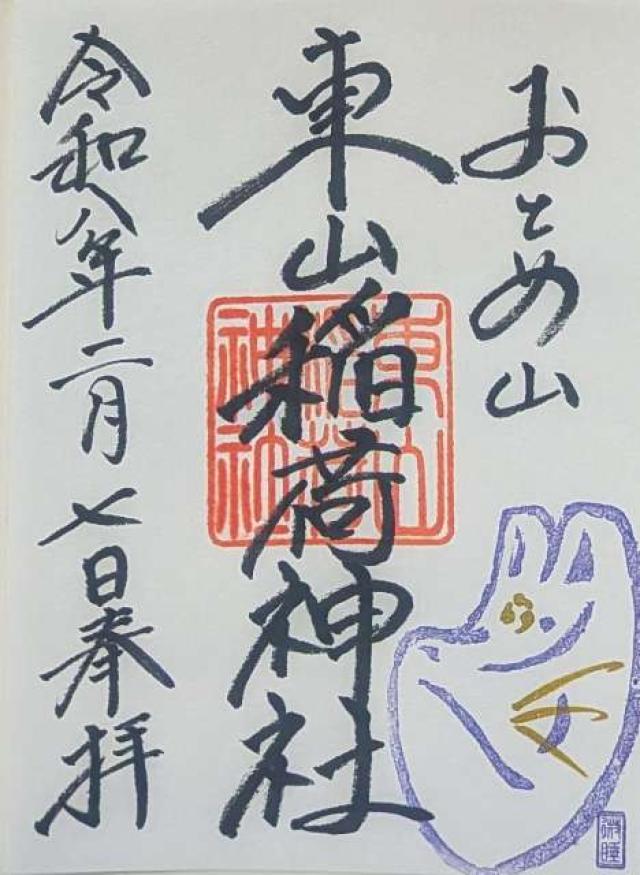 おとめ山
東山稲荷神社
令和八年二月七日奉拝
東山
稲荷
神社
微睡